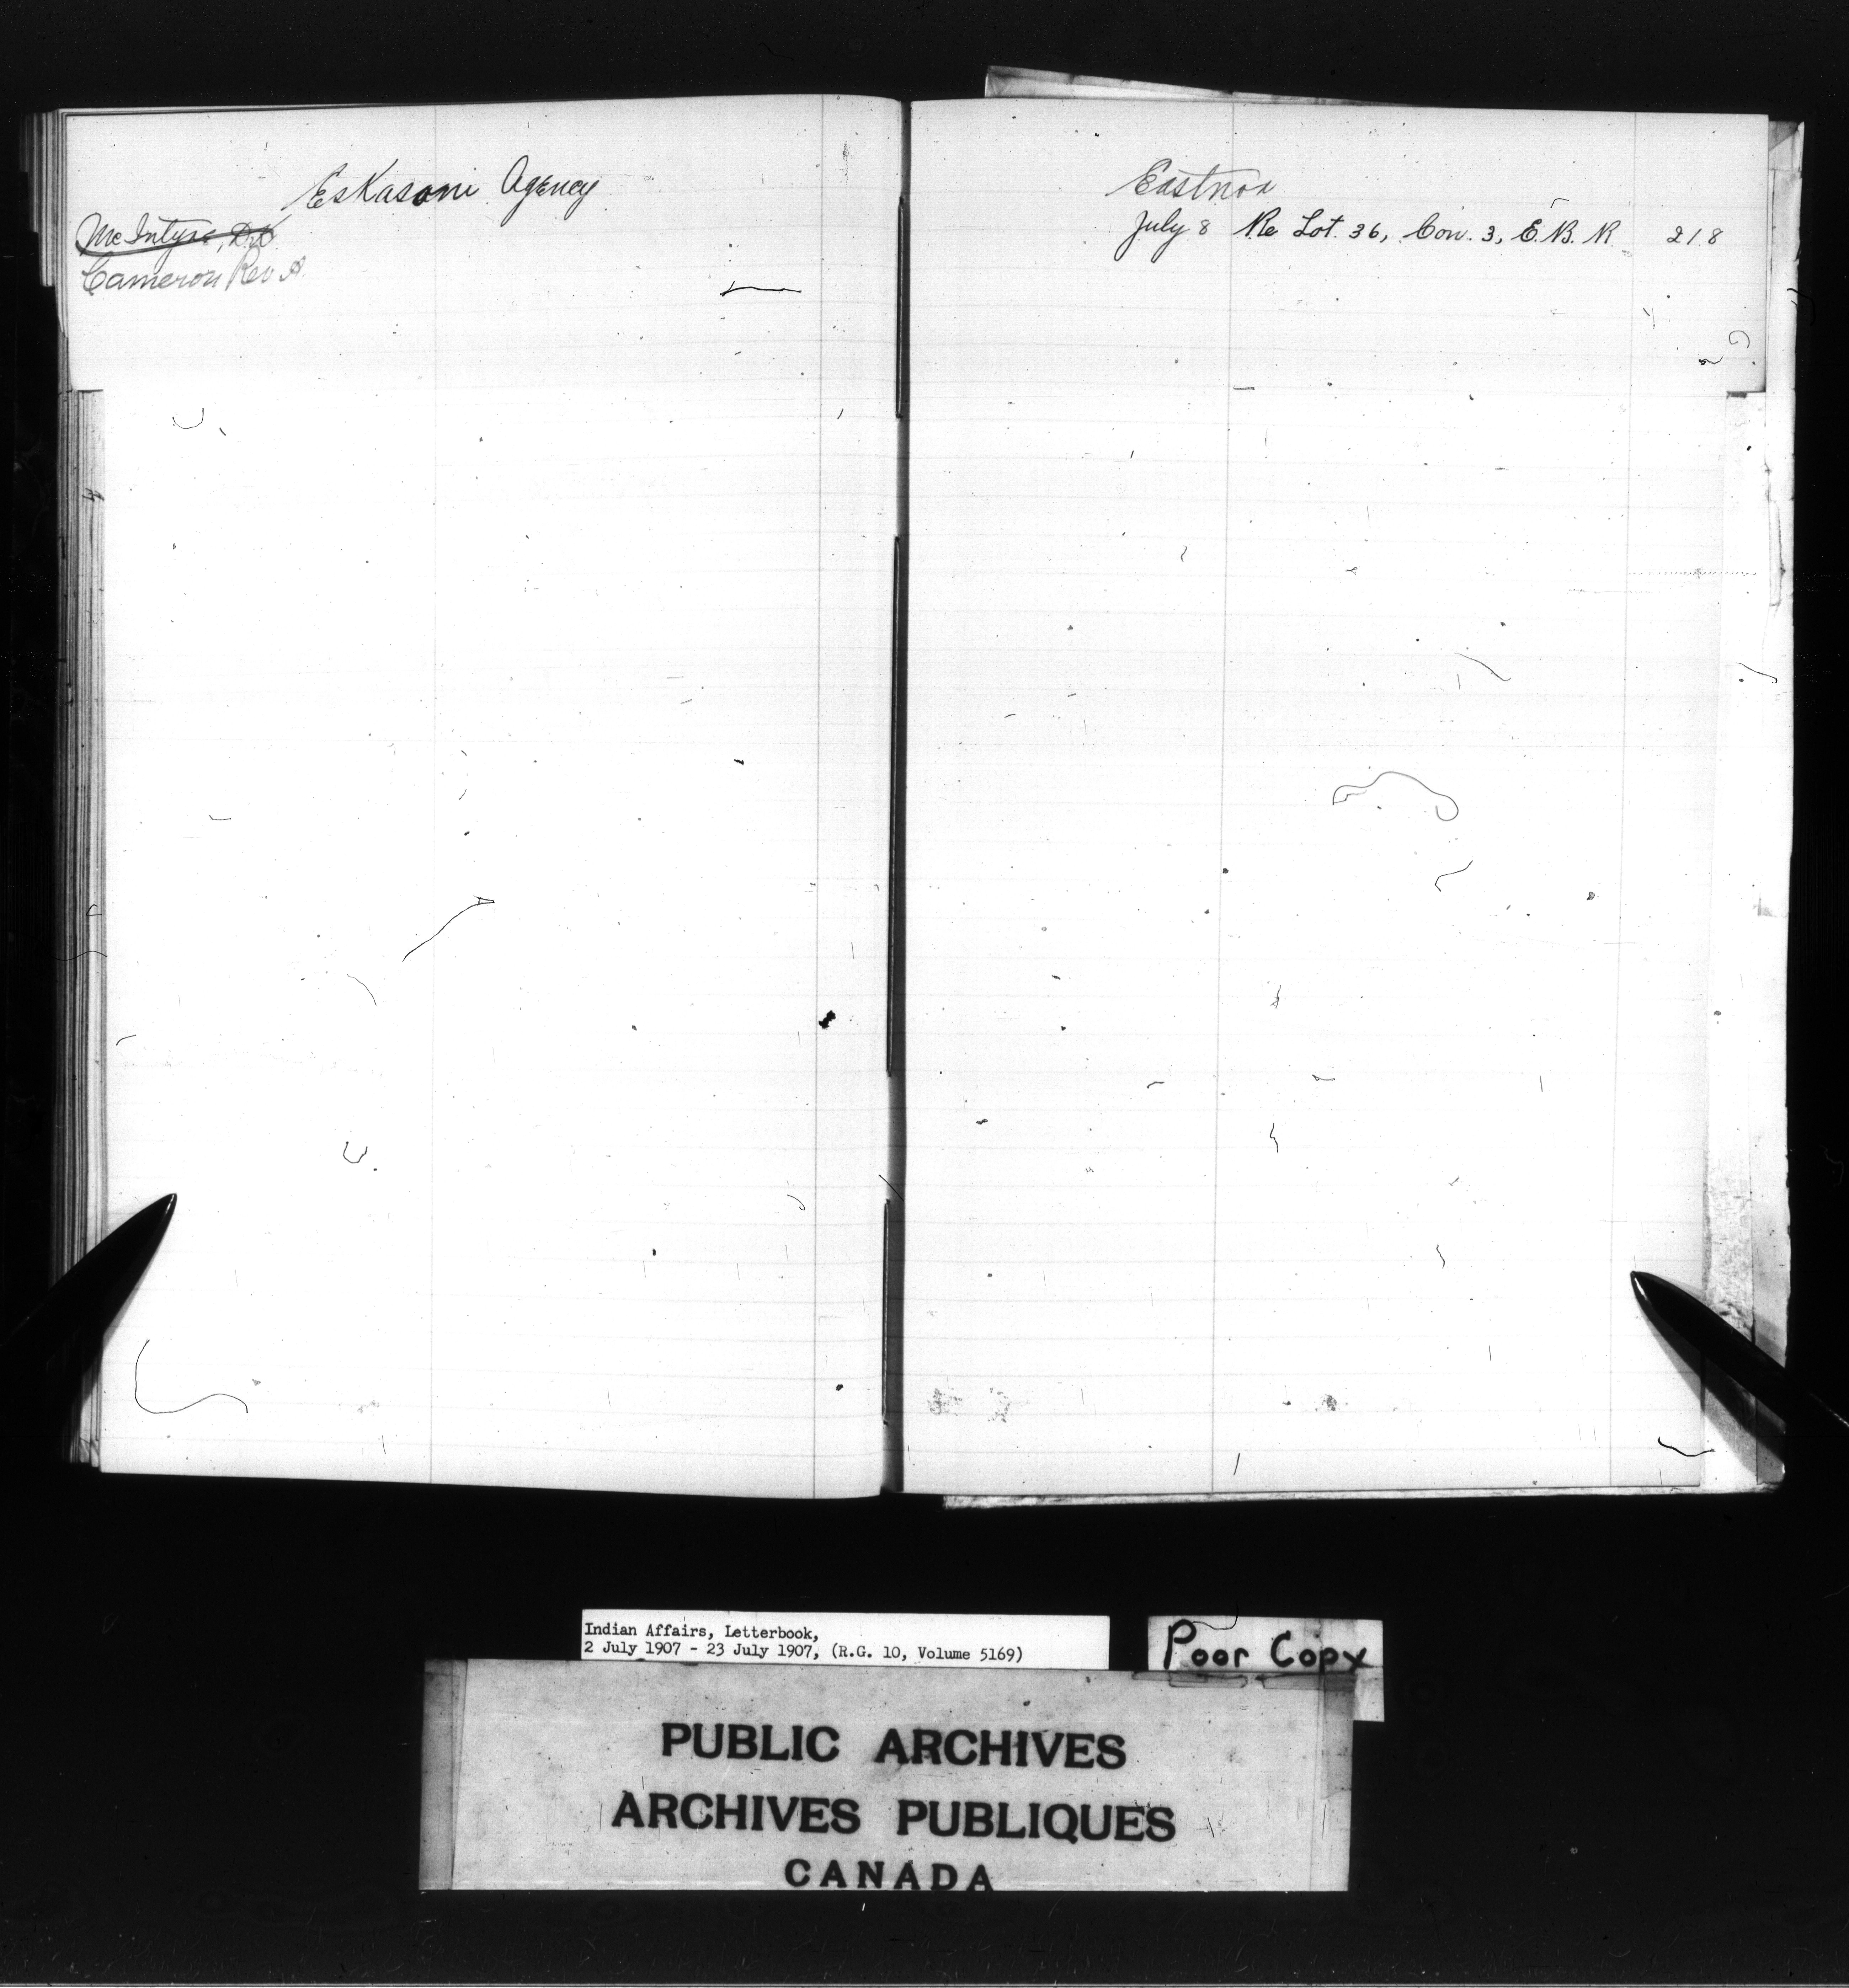 Eskasoni Agency
McIntyre, D.K.
Cameron Rev A.
Eastnor
July 8 Re Lot. 36, Con. 3, E. B. R. 218
Indian Affairs, Letterbook,
2 July 1907 - 23 July 1907, (R.G. 10, Volume 5169)
Poor Copy
PUBLIC ARCHIVES
ARCHIVES PUBLIQUES
CANADA